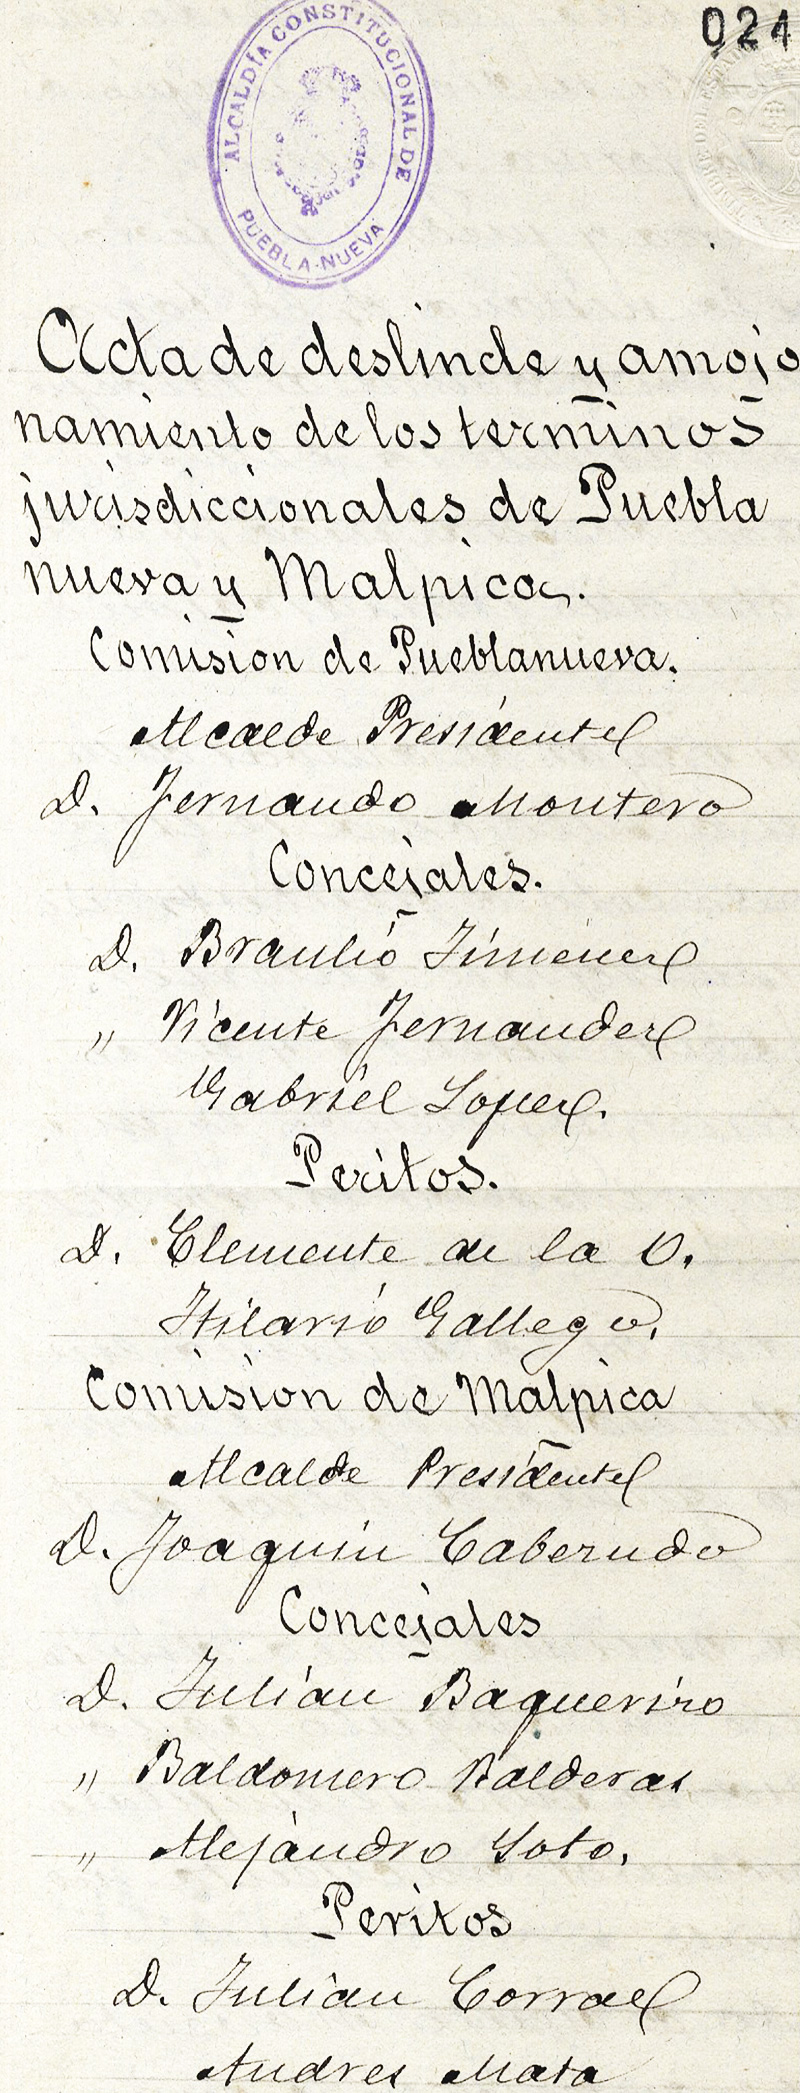 024
ALCALDÍA CONSTITUCIONAL DE
PUEBLA-NUEVA
Acta de deslinde y amojo
namiento de los terminos
jurisdiccionales de Puebla
nueva y Malpica.
Comision de Pueblanueva.
Alcalde Presidente
D. Fernando Montero
Concejales.
D. Braulio Jimenez
" Vicente Fernandez
Gabriel Lopez.
Peritos.
D. Clemente de la O.
Hilario Gallego.
Comision de Malpica
Alcalde Presidente
D. Joaquin Cabezudo
Concejales
D. Julian Baquerizo
" Baldomero Balderas
" Alejandro Soto.
Peritos
D. Julian Corral
Andres Mata